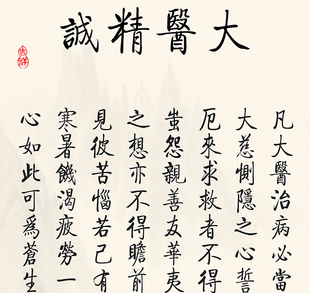 大醫精誠
凡大醫治病必當
大慈惻隱之心誓
厄來求救者不得
蚩怨親善友華夷
之想亦不得瞻前
見彼苦惱若己有
寒暑饑渴疲勞一
心如此可爲蒼生